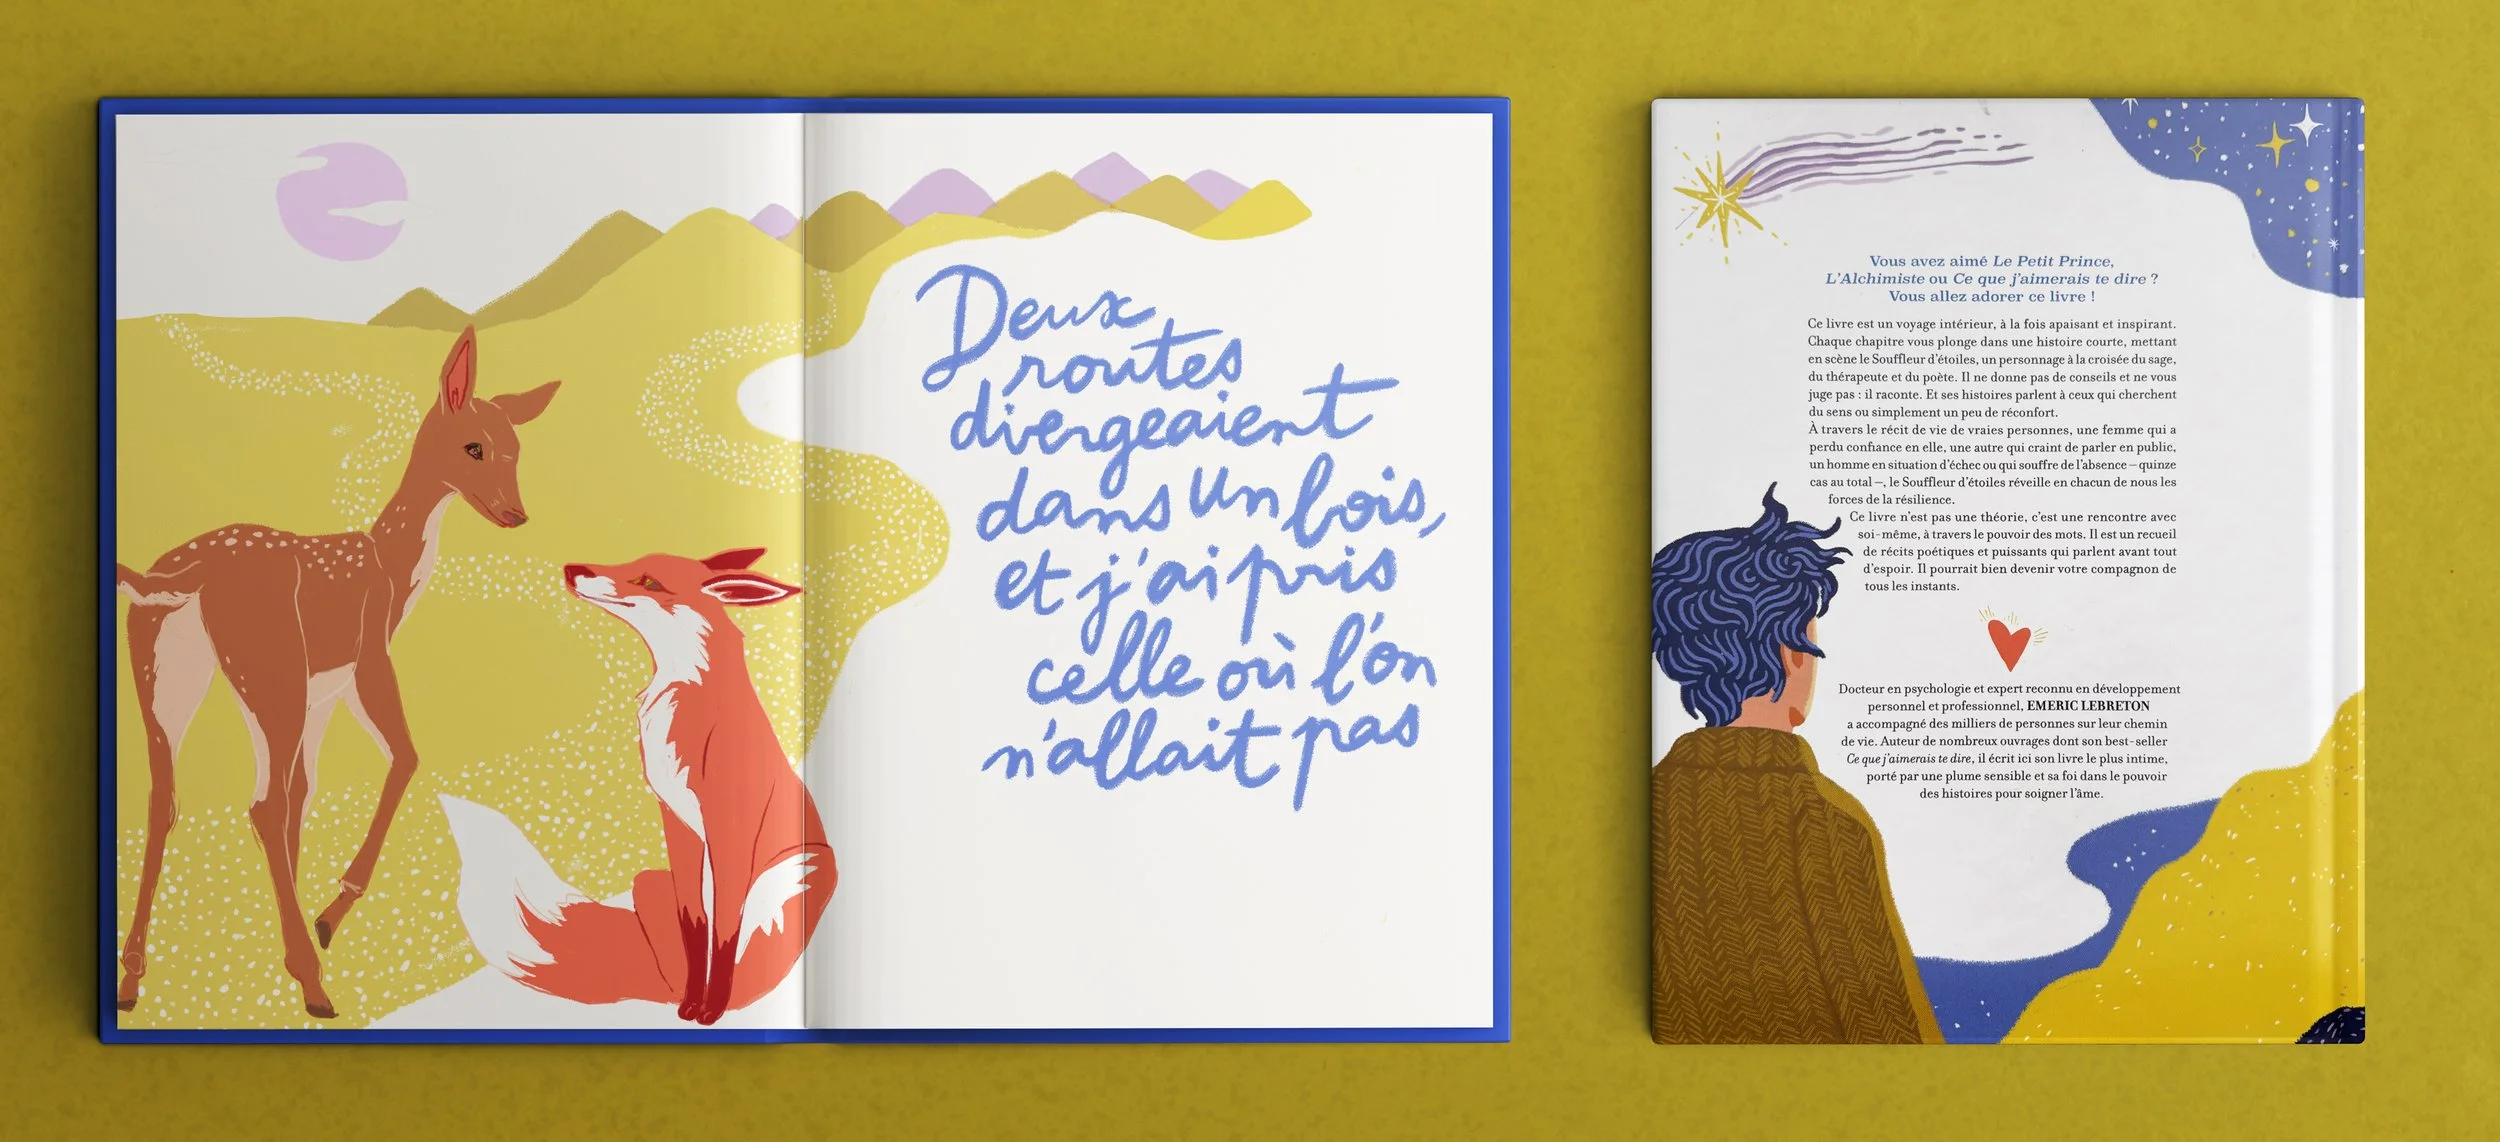 Deux
routes
divergeaient
dans un bois,
et j'ai pris
celle où l'on
n'allait pas
Vous avez aimé Le Petit Prince,
L'Alchimiste ou Ce que j'aimerais te dire ?
Vous allez adorer ce livre !
Ce livre est un voyage intérieur, à la fois apaisant et inspirant.
Chaque chapitre vous plonge dans une histoire courte, mettant
en scène le Souffleur d'étoiles, un personnage à la croisée du sage,
du thérapeute et du poète. Il ne donne pas de conseils et ne vous
juge pas : il raconte. Et ses histoires parlent à ceux qui cherchent
du sens ou simplement un peu de réconfort.
À travers le récit de vie de vraies personnes, une femme qui a
perdu confiance en elle, une autre qui craint de parler en public,
un homme en situation d'échec ou qui souffre de l'absence – quinze
cas au total –, le Souffleur d'étoiles réveille en chacun de nous les
forces de la résilience.
Ce livre n'est pas une théorie, c'est une rencontre avec
soi-même, à travers le pouvoir des mots. Il est un recueil
de récits poétiques et puissants qui parlent avant tout
d'espoir. Il pourrait bien devenir votre compagnon de
tous les instants.
Docteur en psychologie et expert reconnu en développement
personnel et professionnel, EMERIC LEBRETON
a accompagné des milliers de personnes sur leur chemin
de vie. Auteur de nombreux ouvrages dont son best-seller
Ce que j'aimerais te dire, il écrit ici son livre le plus intime,
porté par une plume sensible et sa foi dans le pouvoir
des histoires pour soigner l'âme.